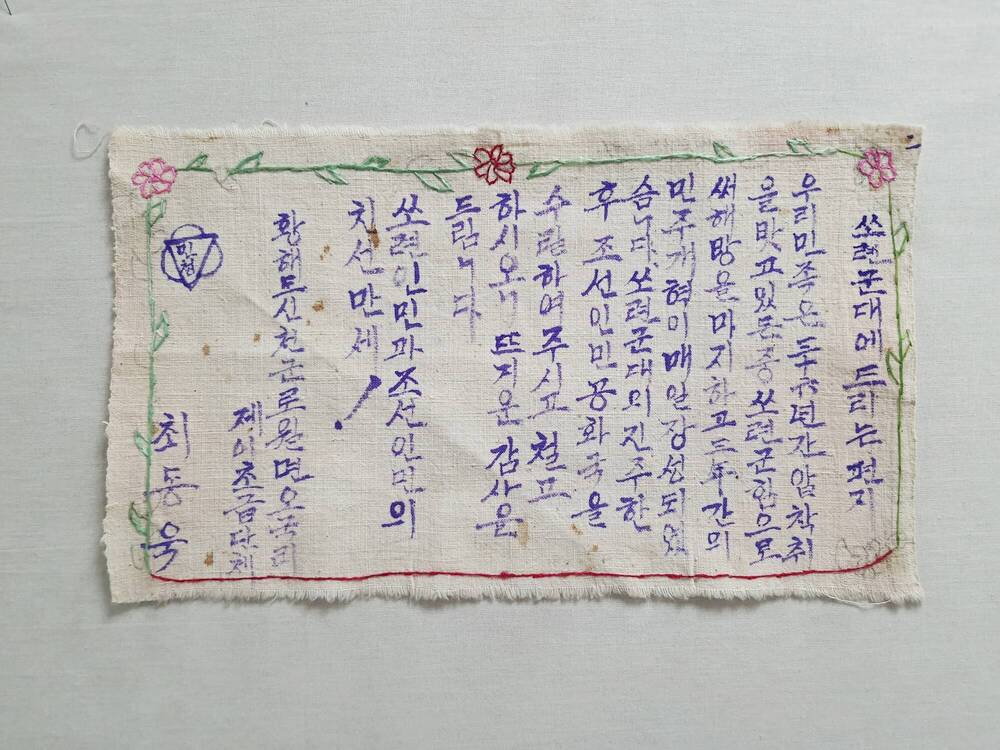 쏘련군대에 드리는 편지
우리 민족은 三十六년간 압착취
을 맛고 있든중 쏘련군힘으로
써 해방을 마지하고 三年간의
민주개혁이 매일 장성되였
슴니다. 쏘련군대의 진주한
후 조선인민공화국을
수립하여 주시고 철고
하시오니 뜨지운 감사을
드림니다
쏘련인민과 조선인민의
치선만세!
황해도 신천군 로월면 오국리
제이초급단체
민청
최동욱